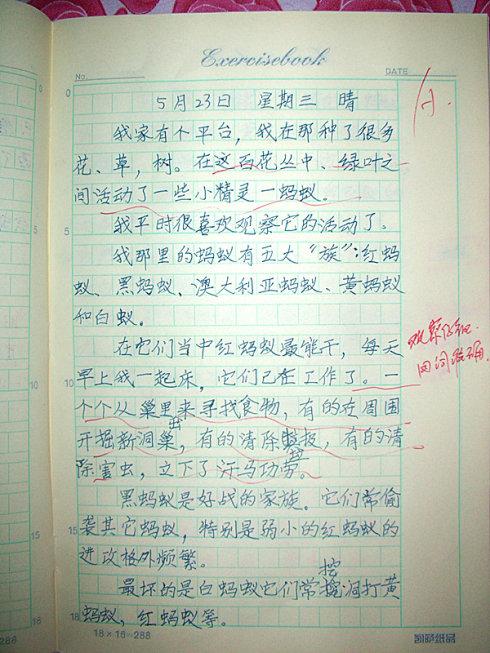 Exercisebook
No.
DATE
5月23日 星期三 晴
我家有个平台,我在那种了很多
花、草,树。在这百花丛中、绿叶之
间活动了一些小精灵—蚂蚁。
我平时很喜欢观察它的活动了。
我那里的蚂蚁有五大“族”:红蚂
蚁、黑蚂蚁、澳大利亚蚂蚁、黄蚂蚁
和白蚁。
在它们当中红蚂蚁最能干,每天
早上我一起床,它们已在工作了。一
个个从巢里来寻找食物,有的在周围
出
开掘新洞巢,有的清除垃圾,有的清
除害虫,立下了汗马功劳。
黑蚂蚁是好战的家族。它们常偷
袭其它蚂蚁,特别是弱小的红蚂蚁的
进攻格外频繁。
挖
最坏的是白蚂蚁它们常洞打黄
蚂蚁,红蚂蚁等。
观察仔细
用词准确
0
5
10
15
18
18×16=288
0
5
10
15
18
=288